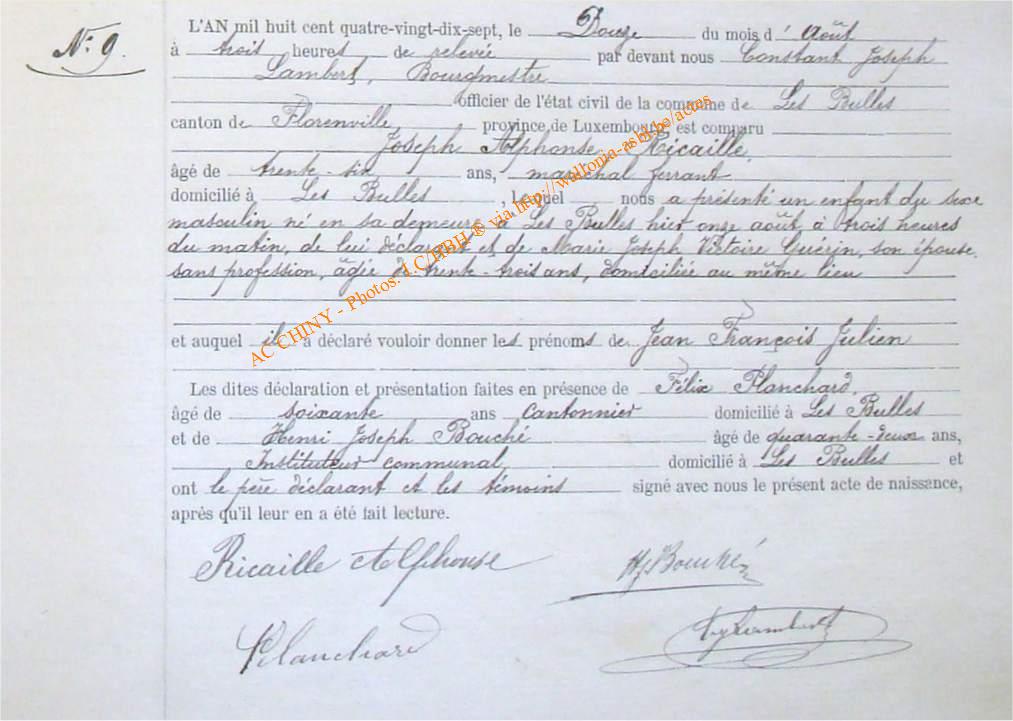 N: 9.
L'AN mil huit cent quatre-vingt-dix-sept, le Douze du mois d' Août
à trois heures de relevée par devant nous Constant Joseph
Lambert, Bourgmestre
officier de l'état civil de la commune de Les Bulles
canton de Florenville province de Luxembourg est comparu
Joseph Alphonse Ricaille,
âgé de trente-six ans, maréchal ferrant
domicilié à Les Bulles, lequel nous a présenté un enfant du sexe
masculin né en sa demeure à Les Bulles hier onze août, à trois heures
du matin, de lui déclarant et de Marie Joseph Victoire Guérin, son épouse,
sans profession, âgée de trente-trois ans, domiciliée au même lieu
et auquel il a déclaré vouloir donner les prénoms de Jean François Julien
Les dites déclaration et présentation faites en présence de Félix Planchard,
âgé de soixante ans Cantonnier domicilié à Les Bulles
et de Henri Joseph Bouché âgé de quarante-deux ans,
Instituteur communal, domicilié à Les Bulles et
ont le père déclarant et les témoins signé avec nous le présent acte de naissance,
après qu'il leur en a été fait lecture.
Ricaille Alphonse
HjBouché
Planchard
CjLambert
AC CHINY - Photos: J.C/HBH ® via http://wallonia-asbl.be/actes